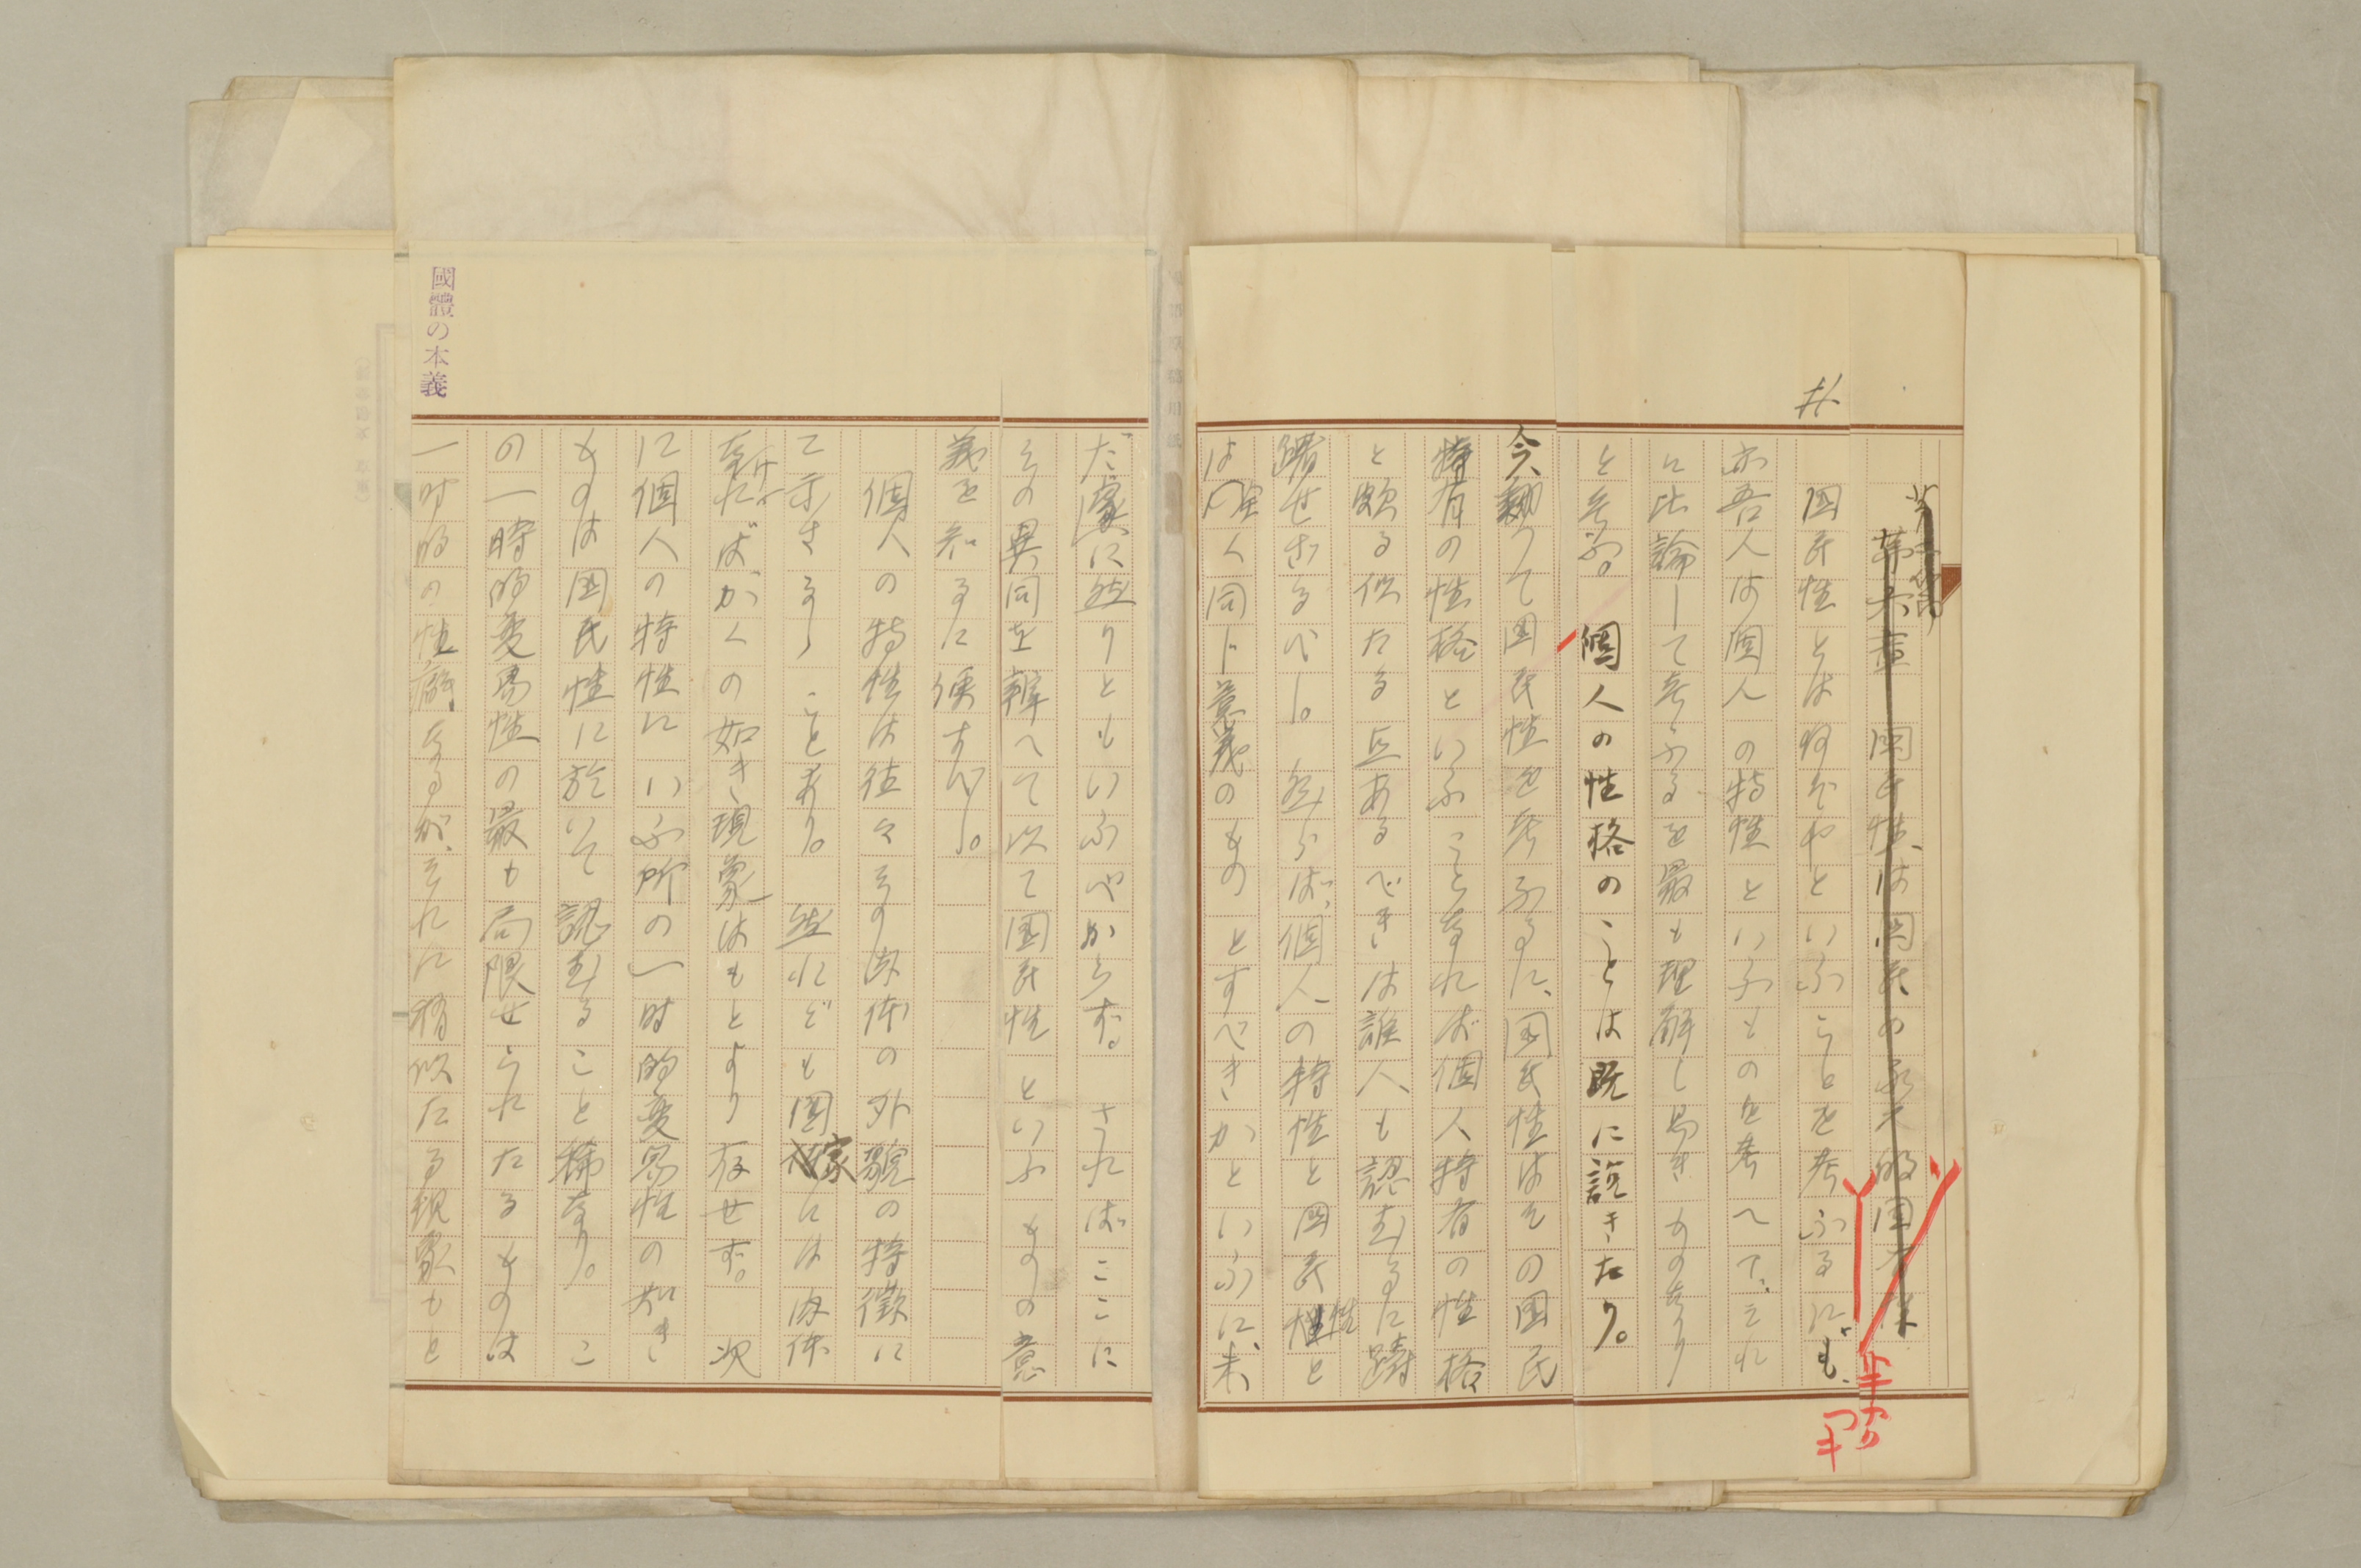 国民性は国民の
国民性とは何ぞやといふことを考ふるにも、
亦吾人は個人の特性といふものを考へて、これ
に比論して考ふるを最も理解し易きものなり
と考ふ。個人の性格のことは既に説きたり。
今、翻りて国民性を考ふるに、国民性はその国民
特有の性格といふことなれば個人特有の性格
と頗る似たる点あるべきは誰人も認むるに躊
躇せざるべし。然らば、個人の特性と国民性と
は全く同じ意義のものとすべきかといふに、未
だ遽に然りともいふべからず。さればここに
その異同を辨へて以て国民性といふものの意
義を知るに便すべし。
個人の特性は往々その肉体の外貌の特徴に
て示さるゝことあり。然れども国家には肉体
なければかくの如き現象はもとより存せず。次
に個人の特性にいふ所の一時的変易性の如き
ものは国民性に於いて認むること稀なり。こ
の一時的変易性の最も局限せられたるものは
一時的の性癖なるが、それに稍似たる現象もと
國體の本義